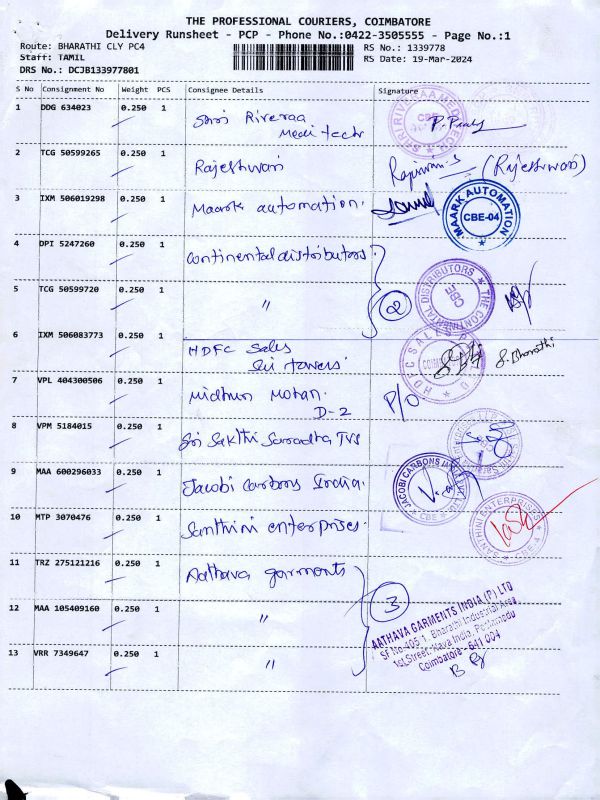 THE PROFESSIONAL COURIERS, COIMBATORE
Delivery Runsheet - PCP - Phone No.:0422-3505555 - Page No.:1
Route: BHARATHI CLY PC4 RS No.: 1339778
Staff: TAMIL RS Date: 19-Mar-2024
DRS No.: DCJB133977801
S No Consignment No Weight PCS Consignee Details Signature
1 DDG 634023 0.250 1 Sri Riveraa
Medi tech
2 TCG 50599265 0.250 1 Rajeshwari (Rajeshwari)
3 IXM 506019298 0.250 1 Maark automation. MAARK AUTOMATION CBE-04
4 DPI 5247260 0.250 1 Continental distributors. THE CONTINENTAL DISTRIBUTORS CBE
5 TCG 50599720 0.250 1 " 2
6 IXM 506083773 0.250 1 HDFC Sales
Sri towers HDFC SALES S. Bharathi
7 VPL 404300506 0.250 1 Midhun Mohan.
D-2 P/O
8 VPM 5184015 0.250 1 Sri Sakthi Saradha TVS
9 MAA 600296033 0.250 1 Jacobi Carbons India. JACOBI CARBONS CBE
10 MTP 3070476 0.250 1 Santhini enterprises. SANTHINI ENTERPRISES CBE-4
11 TRZ 275121216 0.250 1 Aathava garments
12 MAA 105409160 0.250 1 " 3
AATHAVA GARMENTS INDIA (P) LTD
SF No:405 1, Bharathi Industrial Area
1st Street, Kava India, Peelamedu
Coimbatore - 641 004
13 VRR 7349647 0.250 1 "